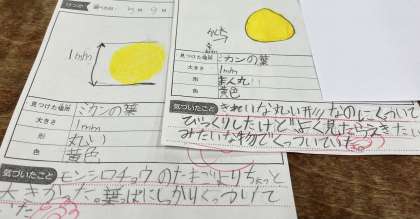 1mm
見つけた場所 ミカンの葉
大きさ 1mm
形 丸い
色 黄色
気づいたこと
モンシロチョウのたまごよりちょっと
大きかった。葉っぱにしっかりくっつけて
た
見つけた場所 ミカンの葉
大きさ 1mm
形 まん丸
色 黄色
気づいたこと
きれいな丸い形なのにくっついて
びっくりしたけどよく見たら
みたいな物でくっついていた